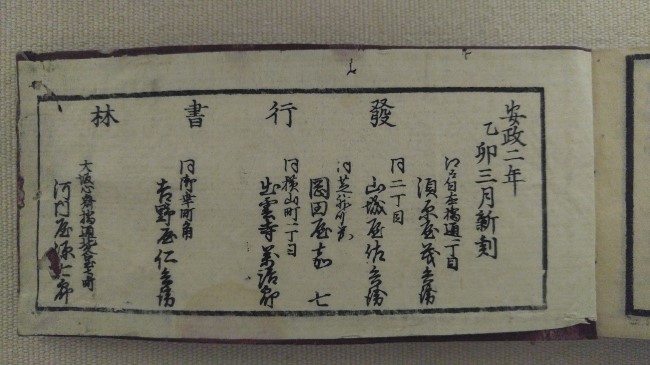 安政二年
乙卯三月新刻
發行書林
江戸日本橋通一丁目
須原屋茂兵衛
同二丁目
山城屋佐兵衛
同芝神明前
岡田屋嘉七
同横山町一丁目
出雲寺萬治郎
同御成町角
吉野屋仁兵衛
大坂心齋橋通
河内屋源七郎